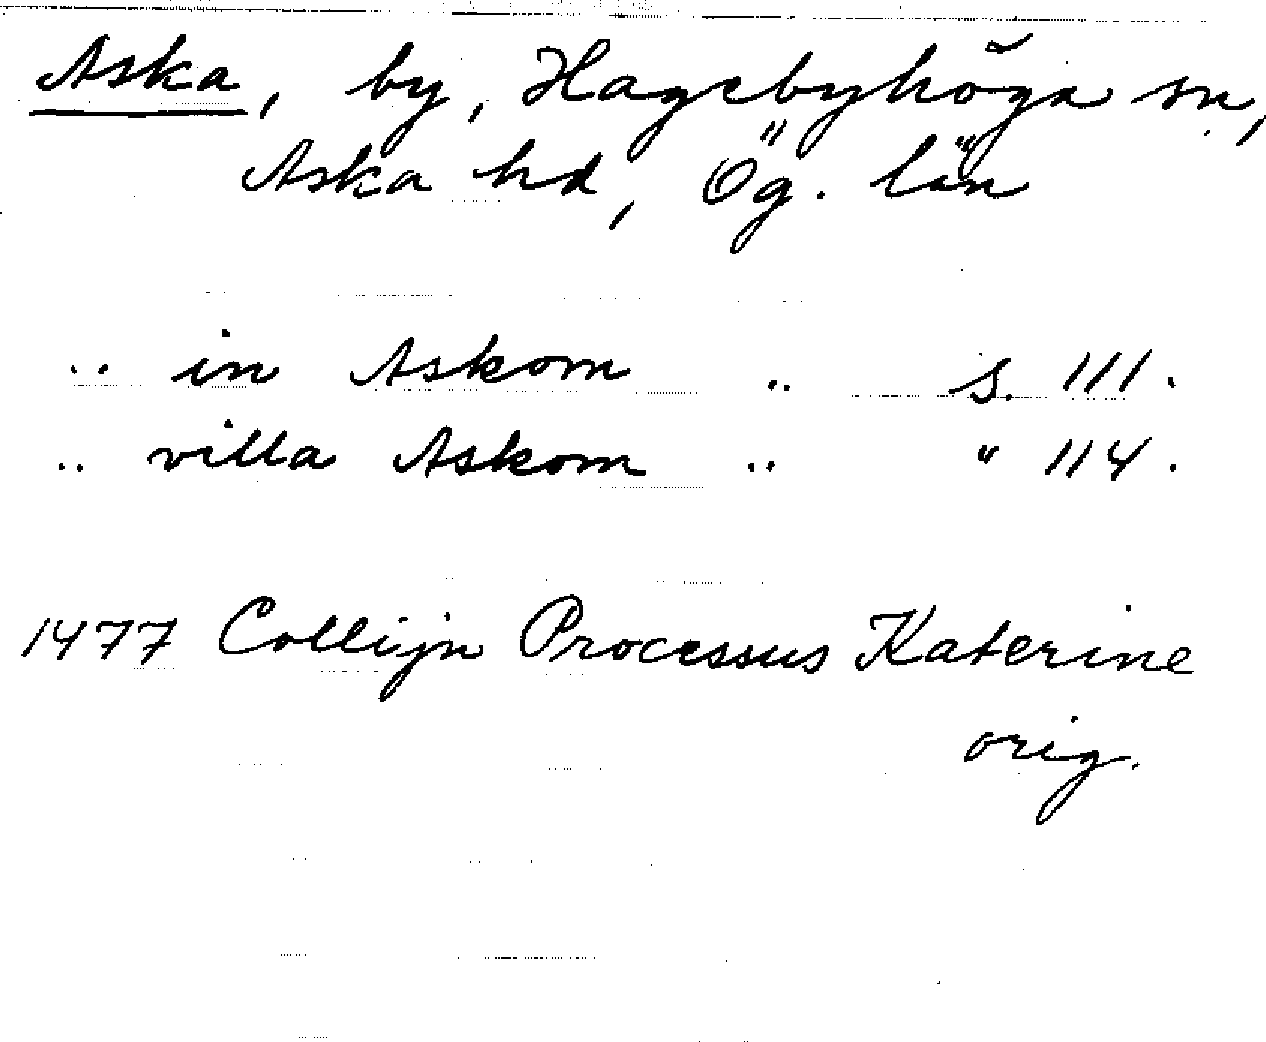 Aska, by, Hagebyhöga sn,
Aska hd, Ög. län
.. in Askom .. s. 111.
.. villa Askom .. " 114.
1477 Collijn Processus Katerine
orig.